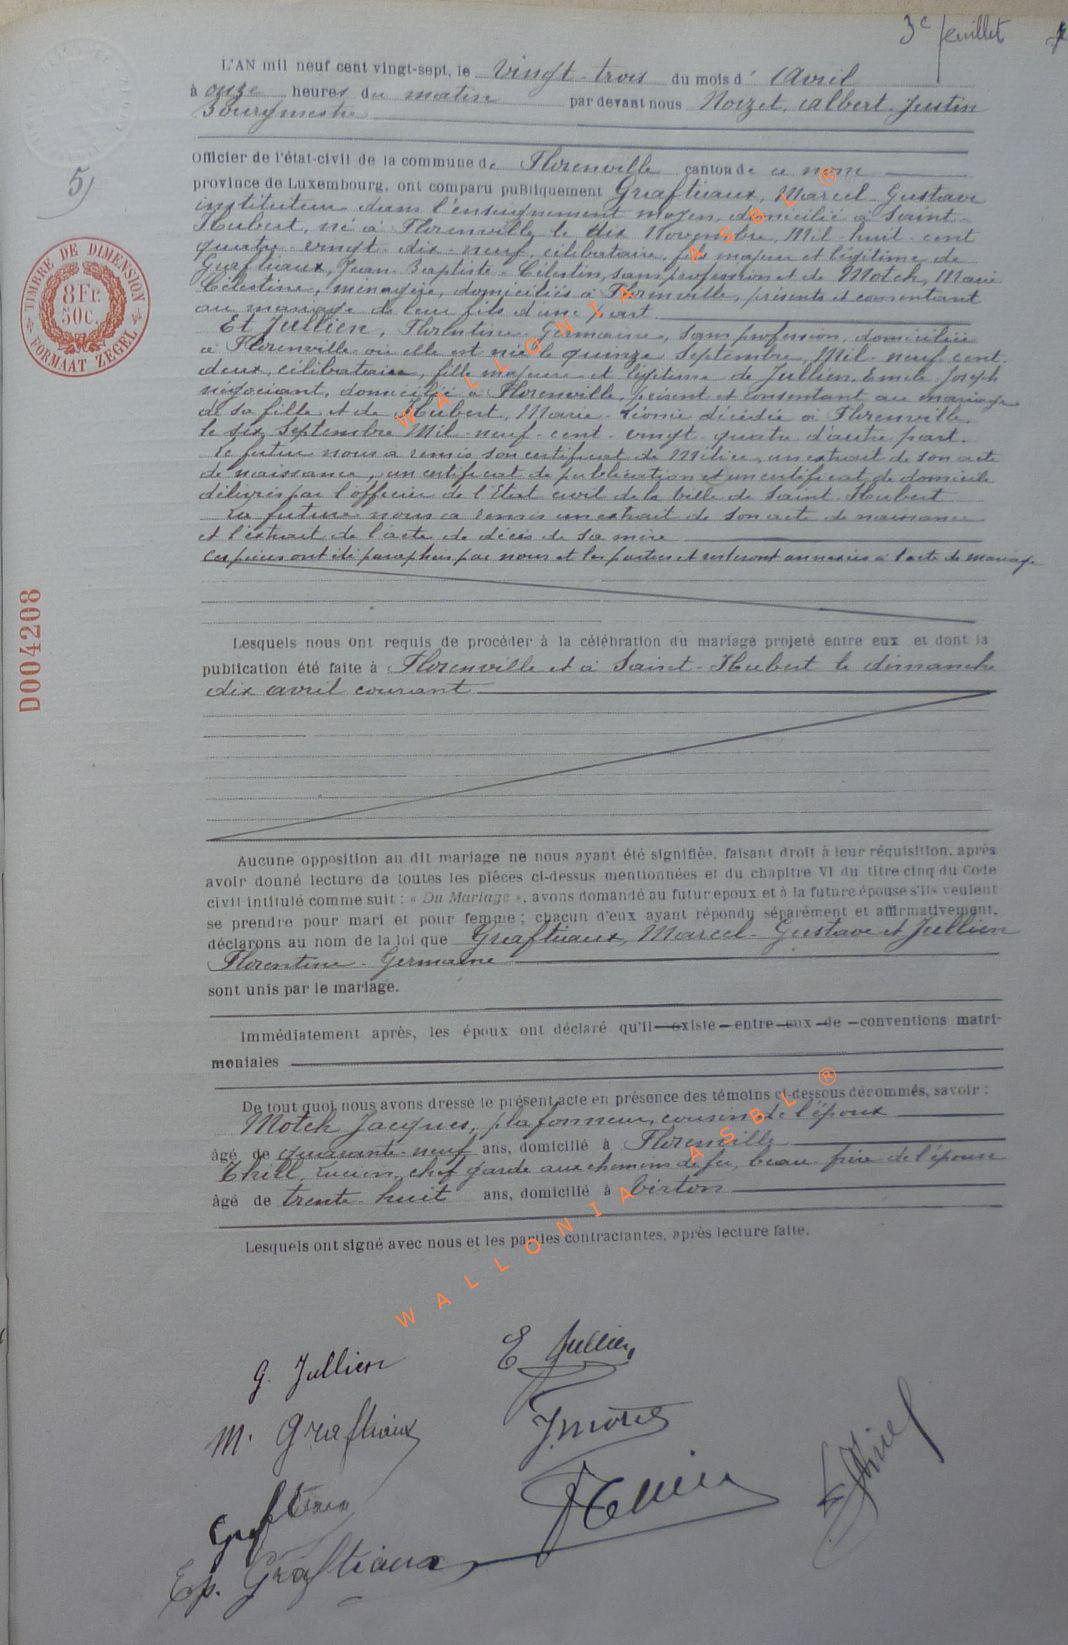 3e feuillet
L'AN mil neuf cent vingt-sept, le vingt-trois du mois d' Avril
à onze heures du matin par devant nous Noizet, Albert-Justin
Bourgmestre
Officier de l'état-civil de la commune de Florenville canton de ce nom
5)
province de Luxembourg, ont comparu publiquement Graftiaux, Marcel-Gustave
instituteur dans l'enseignement moyen, domicilié à Saint-
Hubert, né à Florenville le dix Novembre, Mil-huit-cent
quatre-vingt-dix-neuf, célibataire, fils majeur et légitime de
Graftiaux, Jean-Baptiste-Célestin, sans profession et de Motch, Marie
Célestine, ménagère, domiciliés à Florenville, présents et consentant
au mariage de leur fils d'une part.
Et Jullien, Florentine-Germaine, sans profession, domiciliée
à Florenville où elle est née le quinze Septembre, Mil-neuf-cent-
deux, célibataire, fille majeure et légitime de Jullien, Emile-Joseph
négociant, domicilié à Florenville, présent et consentant au mariage
de sa fille et de Hubert, Marie-Léonie décédée à Florenville,
le six Septembre Mil-neuf-cent-vingt-quatre d'autre part.
Le futur nous a remis son certificat de Milice, un extrait de son acte
de naissance, un certificat de publication et un certificat de domicile
délivrés par l'officier de l'Etat civil de la ville de Saint-Hubert
La future nous a remis un extrait de son acte de naissance
et l'extrait de l'acte de décès de sa mère
Ces pièces ont été paraphées par nous et les parties et resteront annexées à l'acte de mariage
TIMBRE DE DIMENSION
8Fr.
50c.
FORMAAT ZEGEL
D004208
Lesquels nous ont requis de procéder à la célébration du mariage projeté entre eux et dont la
publication été faite à Florenville et à Saint-Hubert le dimanche
dix avril courant
Aucune opposition au dit mariage ne nous ayant été signifiée, faisant droit à leur réquisition, après
avoir donné lecture de toutes les pièces ci-dessus mentionnées et du chapitre VI du titre cinq du Code
civil intitulé comme suit : « Du Mariage », avons demandé au futur epoux et à la future épouse s'ils veulent
se prendre pour mari et pour femme ; chacun d'eux ayant répondu séparément et affirmativement,
déclarons au nom de la loi que Graftiaux, Marcel-Gustave et Jullien
Florentine-Germaine
sont unis par le mariage.
Immédiatement après, les époux ont déclaré qu'il existe entre eux de conventions matri-
moniales
De tout quoi nous avons dressé le présent acte en présence des témoins ci-dessous dénommés, savoir :
Motch Jacques, plafonneur, cousin de l'époux
âgé de quarante-neuf ans, domicilié à Florenville
Thill, Lucien, chef garde aux chemins de fer, beau-frère de l'épouse
âgé de trente-huit ans, domicilié à Virton
Lesquels ont signé avec nous et les parties contractantes, après lecture faite.
G. Jullien
E Jullien
M. Graftiaux
Graftiaux
Ep. Graftiaux
WALLONIA ASBL ®
WALLONIA ASBL ®